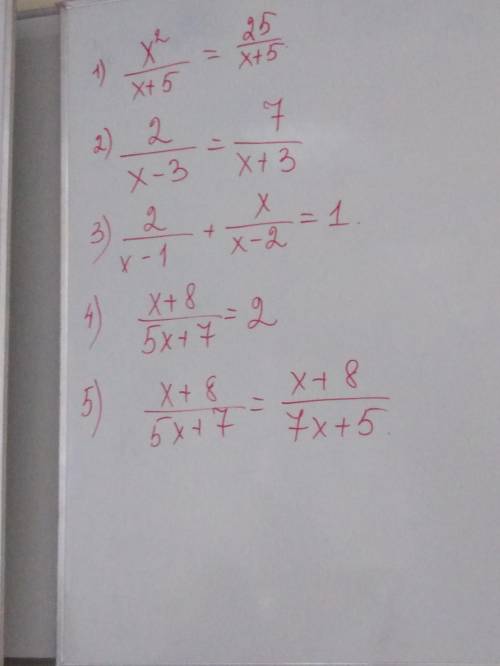 1) x²/(x+5) = 25/(x+5)
2) 2/(x-3) = 7/(x+3)
3) 2/(x-1) + x/(x-2) = 1.
4) (x+8)/(5x+7) = 2
5) (x+8)/(5x+7) = (x+8)/(7x+5)